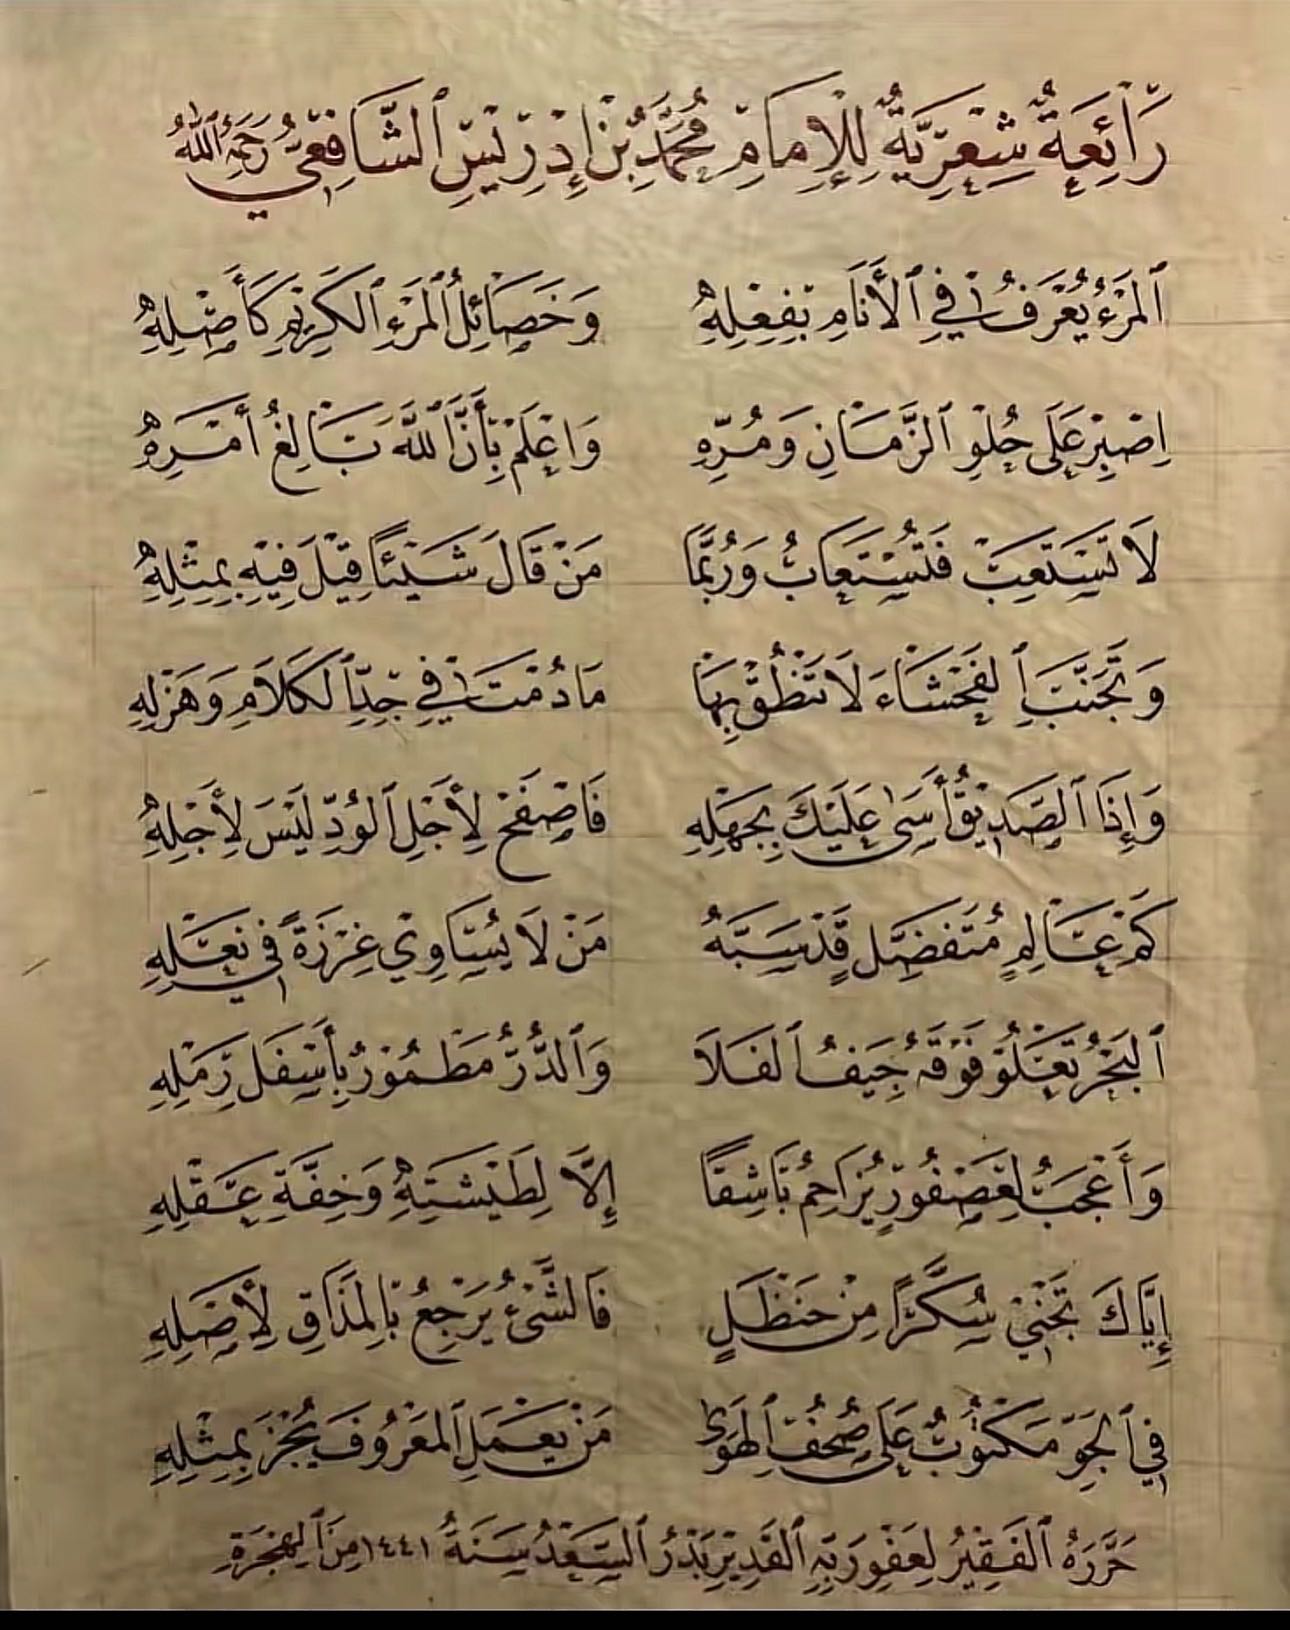 رَائِعَةٌ شِعْرِيَّةٌ لِلْإِمَامِ مُحَمَّدِ بْنِ إِدْرِيْسِ ٱلشَّافِعِيِّ رَحِمَهُ ٱللهُ
ٱلْمَرْءُ يُعْرَفُ فِي ٱلْأَنَامِ بِفِعْلِهِ وَخَصَائِلُ ٱلْمَرْءِ ٱلْكَرِيْمِ كَأَصْلِهِ
اِصْبِرْ عَلَى حُلْوِ ٱلزَّمَانِ وَمُرِّهِ وَاعْلَمْ بِأَنَّ ٱللهَ بَالِغُ أَمْرِهِ
لَا تَسْتَعِبْ فَتُسْتَعَابُ وَرُبَّمَا مَنْ قَالَ شَيْئًا قِيْلَ فِيْهِ بِمِثْلِهِ
وَتَجَنَّبَ ٱلْفَحْشَاءَ لَا تَنْطُقْ بِهَا مَا دُمْتَ فِي جِدِّ ٱلْكَلَامِ وَهَزْلِهِ
وَإِذَا ٱلصَّدِيْقُ أَسَى عَلَيْكَ بِجَهْلِهِ فَاصْفَحْ لِأَجْلِ ٱلْوُدِّ لَيْسَ لِأَجْلِهِ
كَمْ عَالِمٍ مُتَفَضِّلٍ قَدْ سَبَّهُ مَنْ لَا يُسَاوِيْ غِرْزَةً فِي نَعْلِهِ
ٱلْبَحْرُ تَعْلُوْ فَوْقَهُ جِيَفُ ٱلْفَلَا وَٱلدُّرُّ مَطْمُوْرٌ بِأَسْفَلِ رَمْلِهِ
وَأَعْجَبُ لِعُصْفُوْرٍ يُزَاحِمُ بَاشِقًا إِلَّا لِطَيْشَتِهِ وَخِفَّةِ عَقْلِهِ
إِيَّاكَ تَجْنِيْ سُكَّرًا مِنْ حَنْظَلٍ فَالشَّيْءُ يَرْجِعُ بِالْمَذَاقِ لِأَصْلِهِ
فِي ٱلْجَوِّ مَكْتُوْبٌ عَلَى صُحُفِ ٱلْهَوَى مَنْ يَعْمَلِ ٱلْمَعْرُوْفَ يُجْزَ بِمِثْلِهِ
حَرَّرَهُ ٱلْفَقِيْرُ لِعَفْوِ رَبِّهِ ٱلْقَدِيْرِ بَدْرُ ٱلسَّعْدُ سَنَةُ ١٤٤١ مِنَ ٱلْهِجْرَةِ